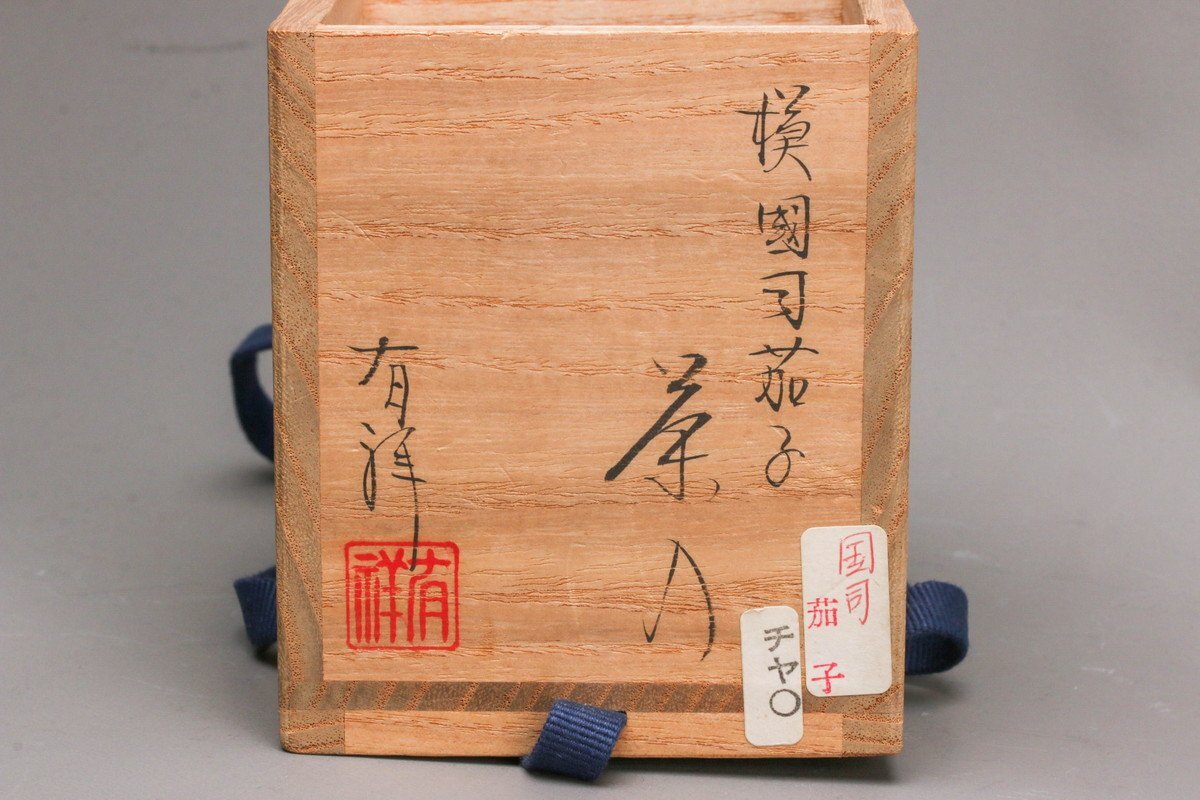 模國司茄子
茶入
有祥
有祥
国司
茄子
チヤ〇